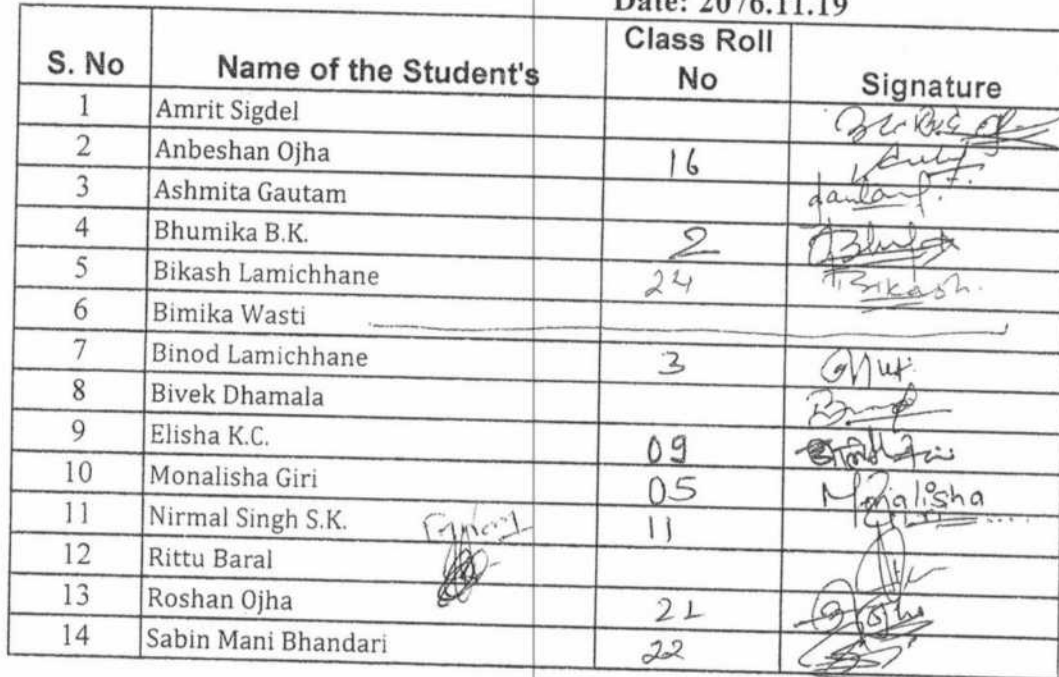 Date: 2076.11.19
S. No Name of the Student's Class Roll No Signature
1 Amrit Sigdel
2 Anbeshan Ojha 16
3 Ashmita Gautam
4 Bhumika B.K. 2
5 Bikash Lamichhane 24 Bikash
6 Bimika Wasti
7 Binod Lamichhane 3
8 Bivek Dhamala
9 Elisha K.C. 09
10 Monalisha Giri 05 Monalisha
11 Nirmal Singh S.K. 11
12 Rittu Baral
13 Roshan Ojha 21
14 Sabin Mani Bhandari 22